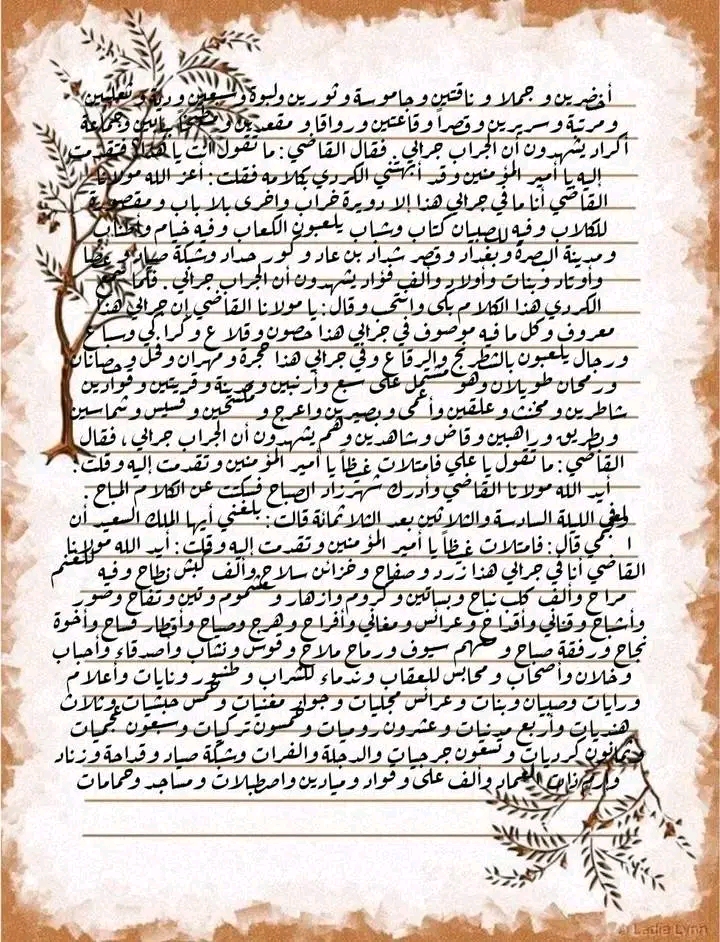 أخضرين و جملا و ناقتين و جاموسة و ثورين ولبوة وسبعين ودبة و ثعلبين
ومرتبة وسريرين وقصراً وقاعتين ورواقا و مقعدين و مطبخاً ببابين وجماعة
أكراد يشهدون أن الجراب جرابي . فقال القاضي : ما تقول أنت يا هذا؟ فتقدمت
إليه يا أمير المؤمنين وقد أبهتني الكردي بكلامه فقلت : أعز الله مولانا
القاضي أنا ما في جرابي هذا إلا دويرة خراب وأخرى بلا باب و مقصورة
للكلاب وفيه للصبيان كتاب وشباب يلعبون الكعاب وفيه خيام وأطناب
ومدينة البصرة وبغداد وقصر شداد بن عاد و كور حداد وشبكة صياد وعصا
وأوتاد وبنات وأولاد وألف قواد يشهدون أن الجراب جرابي . فلما سمع
الكردي هذا الكلام بكى وانتحب وقال : يا مولانا القاضي إن جرابي هذا
معروف وكل ما فيه موصوف في جرابي هذا حصون وقلاع وكراكي وسباع
ورجال يلعبون بالشطرنج والرقاع وفي جرابي هذا حجرة ومهران وفحل وحصانان
ورمحان طويلان وهو مشتمل على سبع وأرنبين ومدينة وقريتين وقوادين
شاطرين ومخنث وعلقين وأعمى وبصيرين وأعرج و مكسحين وقسيس وشماسين
وبطريق وراهبين وقاض وشاهدين وهم يشهدون أن الجراب جرابي ، فقال
القاضي : ما تقول يا علي فامتلأت غيظاً يا أمير المؤمنين وتقدمت إليه وقلت :
أيد الله مولانا القاضي وأدرك شهرزاد الصباح فسكتت عن الكلام المباح .
وفي الليلة السادسة والثلاثين بعد الثلاثمائة قالت : بلغني أيها الملك السعيد أن
قال : فامتلأت غيظاً يا أمير المؤمنين وتقدمت إليه وقلت : أيد الله مولانا
القاضي أنا في جرابي هذا زرد وصفاح وخزائن سلاح وألف كبش نطاح وفيه للغنم
مراح وألف كلب نباح وبساتين وكروم وأزهار ومشموم وتين وتفاح وصور
وأشباح وقناني وأقداح وعرائس ومغاني وأفراح وهرج وصياح وأقطار فساح وأخوة
نجاح ورفقة صباح و معهم سيوف ورماح ملاح وقوس ونشاب وأصدقاء وأحباب
وخلان وأصحاب و محابس للعقاب وندماء للشراب و طنبور ونايات وأعلام
ورايات وصبيان وبنات وعرائس مجليات وجوار مغنيات وخمس حبشيات وثلاث
هنديات وأربع مدنيات وعشرون روميات وخمسون تركيات وسبعون عجميات
وثمانون كرديات وتسعون جرجيات والدجلة والفرات وشبكة صياد وقداحة وزناد
وإرم ذات العماد وألف علق وقواد وميادين واصطبلات ومساجد وحمامات
Ladie Lynn